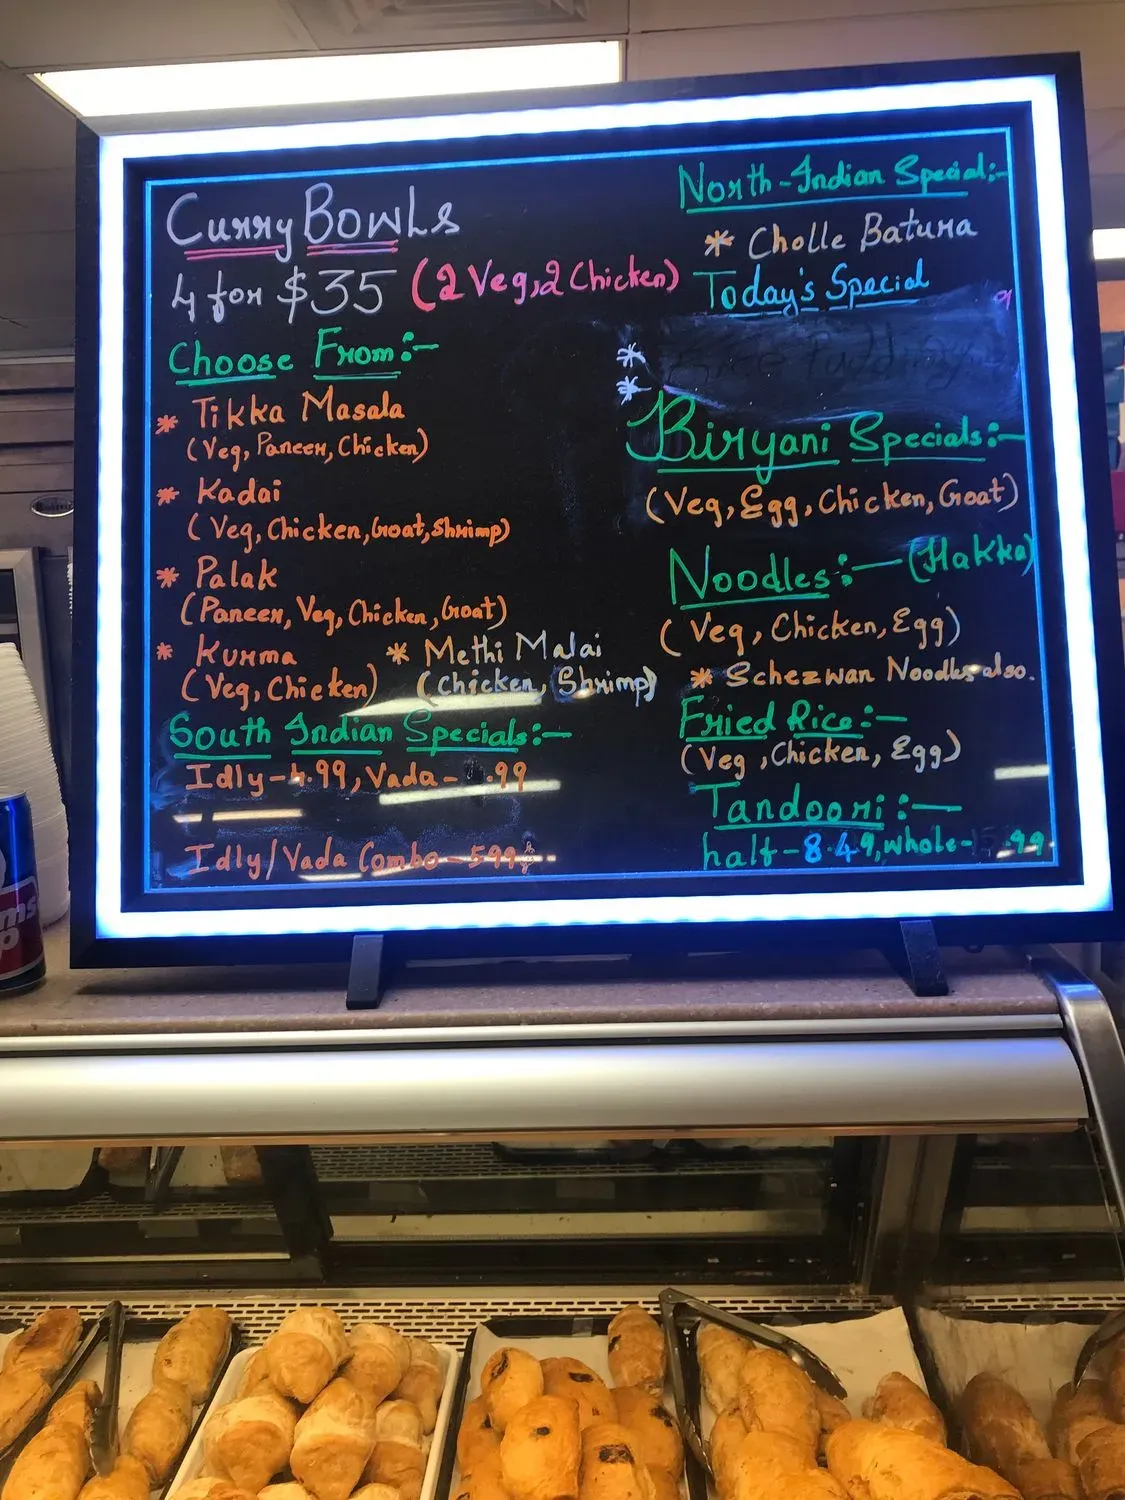 Curry Bowls
4 for $35 (2 Veg, 2 Chicken)
Choose From:-
* Tikka Masala
(Veg, Paneer, Chicken)
* Kadai
(Veg, Chicken, Goat, Shrimp)
* Palak
(Paneer, Veg, Chicken, Goat)
* Kurma
(Veg, Chicken)
* Methi Malai
(Chicken, Shrimp)
South Indian Specials:-
Idly-4.99, Vada- .99
Idly/Vada Combo-5.99
North-Indian Special:-
* Cholle Batura
Today's Special
*
*
Biryani Specials:-
(Veg, Egg, Chicken, Goat)
Noodles:-(Hakka)
(Veg, Chicken, Egg)
* Schezwan Noodles also.
Fried Rice:-
(Veg, Chicken, Egg)
Tandoori:-
half-8.49, whole- .99